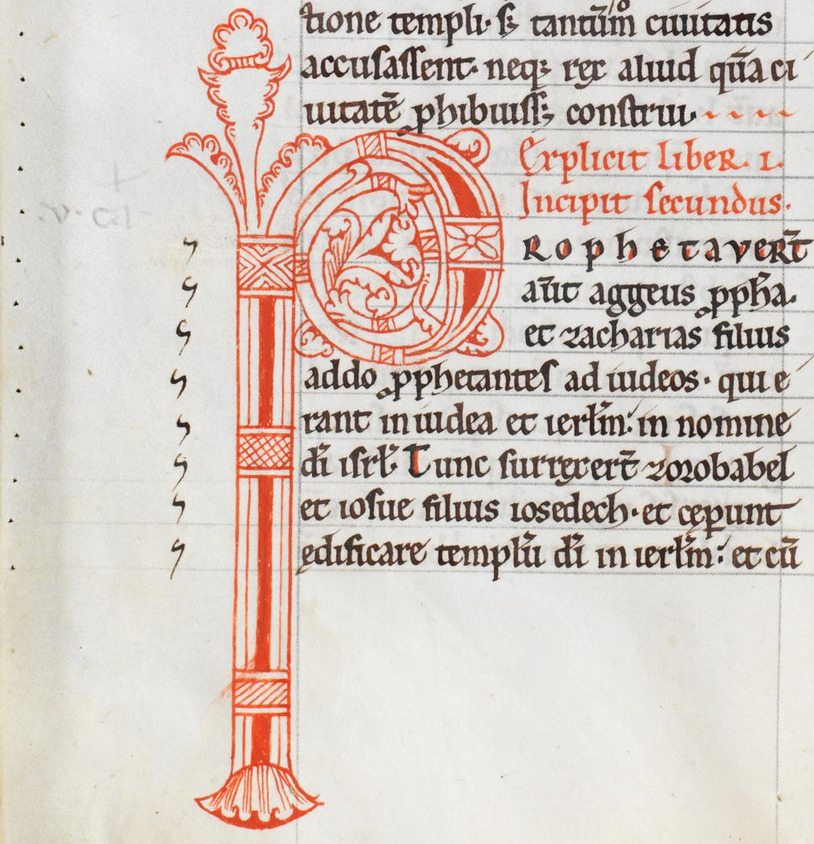 tione templi· sꝫ tantūm̊ ciuitatis
accusassent· neqꝫ rex aliud qua̅ ci
uitatē ꝓhibuissꝫ construi·
Explicit liber· i·
Incipit secundus·
PRophetauerT̄
aūt aggeus ꝓph̄a·
et zacharias filius
addo ꝓphetantes ad iudeos· qui e
rant in iudea et ierl̄m: in nomine
dī isrl̄· Tunc surrexert̄ zorobabel
et iosue filius iosedech· et ceperunt
ędificare templū dī in ierl̄m: et cū